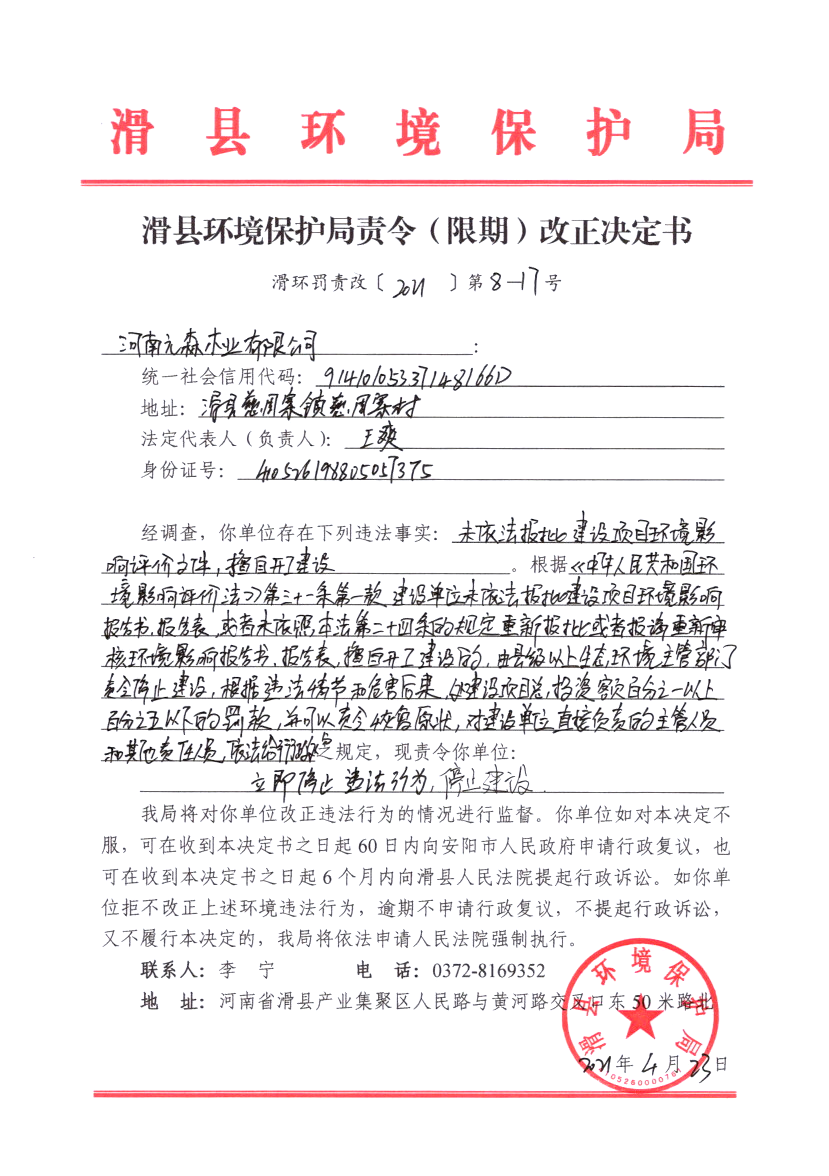 滑县环境保护局
滑县环境保护局责令（限期）改正决定书
滑环罚责改〔2021〕第8-17号
河南元森木业有限公司：
统一社会信用代码：91410105337148166D
地址：滑县慈周寨镇慈周寨村
法定代表人（负责人）：王爽
身份证号：
经调查，你单位存在下列违法事实：未依法报批建设项目环境影
响评价文件，擅自开工建设。根据《中华人民共和国环
境影响评价法》第三十一条第一款 建设单位未依法报批建设项目环境影响
报告书、报告表，或者未依照本法第二十四条的规定重新报批或者报请重新审
核环境影响报告书、报告表，擅自开工建设的，由县级以上生态环境主管部门
责令停止建设，根据违法情节和危害后果，处建设项目总投资额百分之一以上
百分之五以下的罚款，并可以责令恢复原状，对建设单位直接负责的主管人员
和其他责任人员，依法给行政处之规定，现责令你单位：
立即停止违法行为，停止建设.
我局将对你单位改正违法行为的情况进行监督。你单位如对本决定不
服，可在收到本决定书之日起60日内向安阳市人民政府申请行政复议，也
可在收到本决定书之日起6个月内向滑县人民法院提起行政诉讼。如你单
位拒不改正上述环境违法行为，逾期不申请行政复议，不提起行政诉讼，
又不履行本决定的，我局将依法申请人民法院强制执行。
联系人：李 宁 电 话：0372-8169352
地 址：河南省滑县产业集聚区人民路与黄河路交叉口东50米路北
滑县环境保护局
2021年4月23日